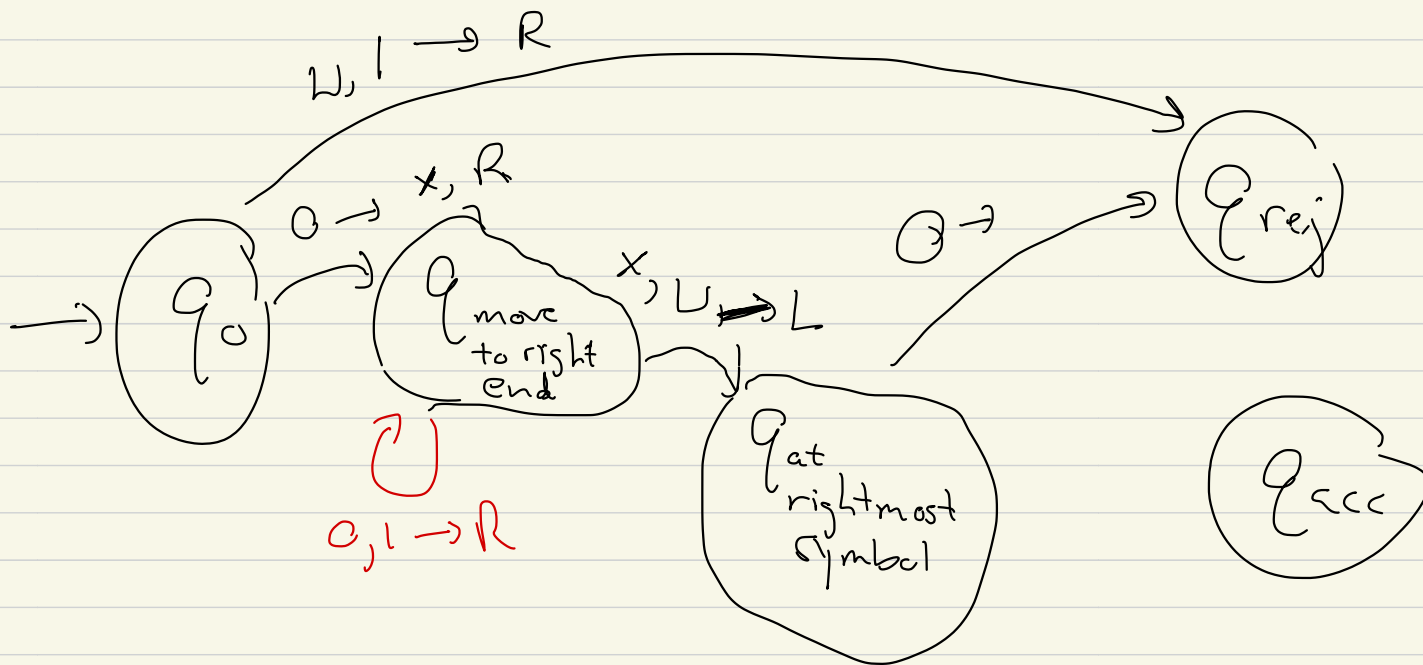 ⊔, 1 → R
0 → x, R
x, ⊔, → L
0 →
q0
q move
to right
end
q rej
0, 1 → R
q at
rightmost
symbol
q acc